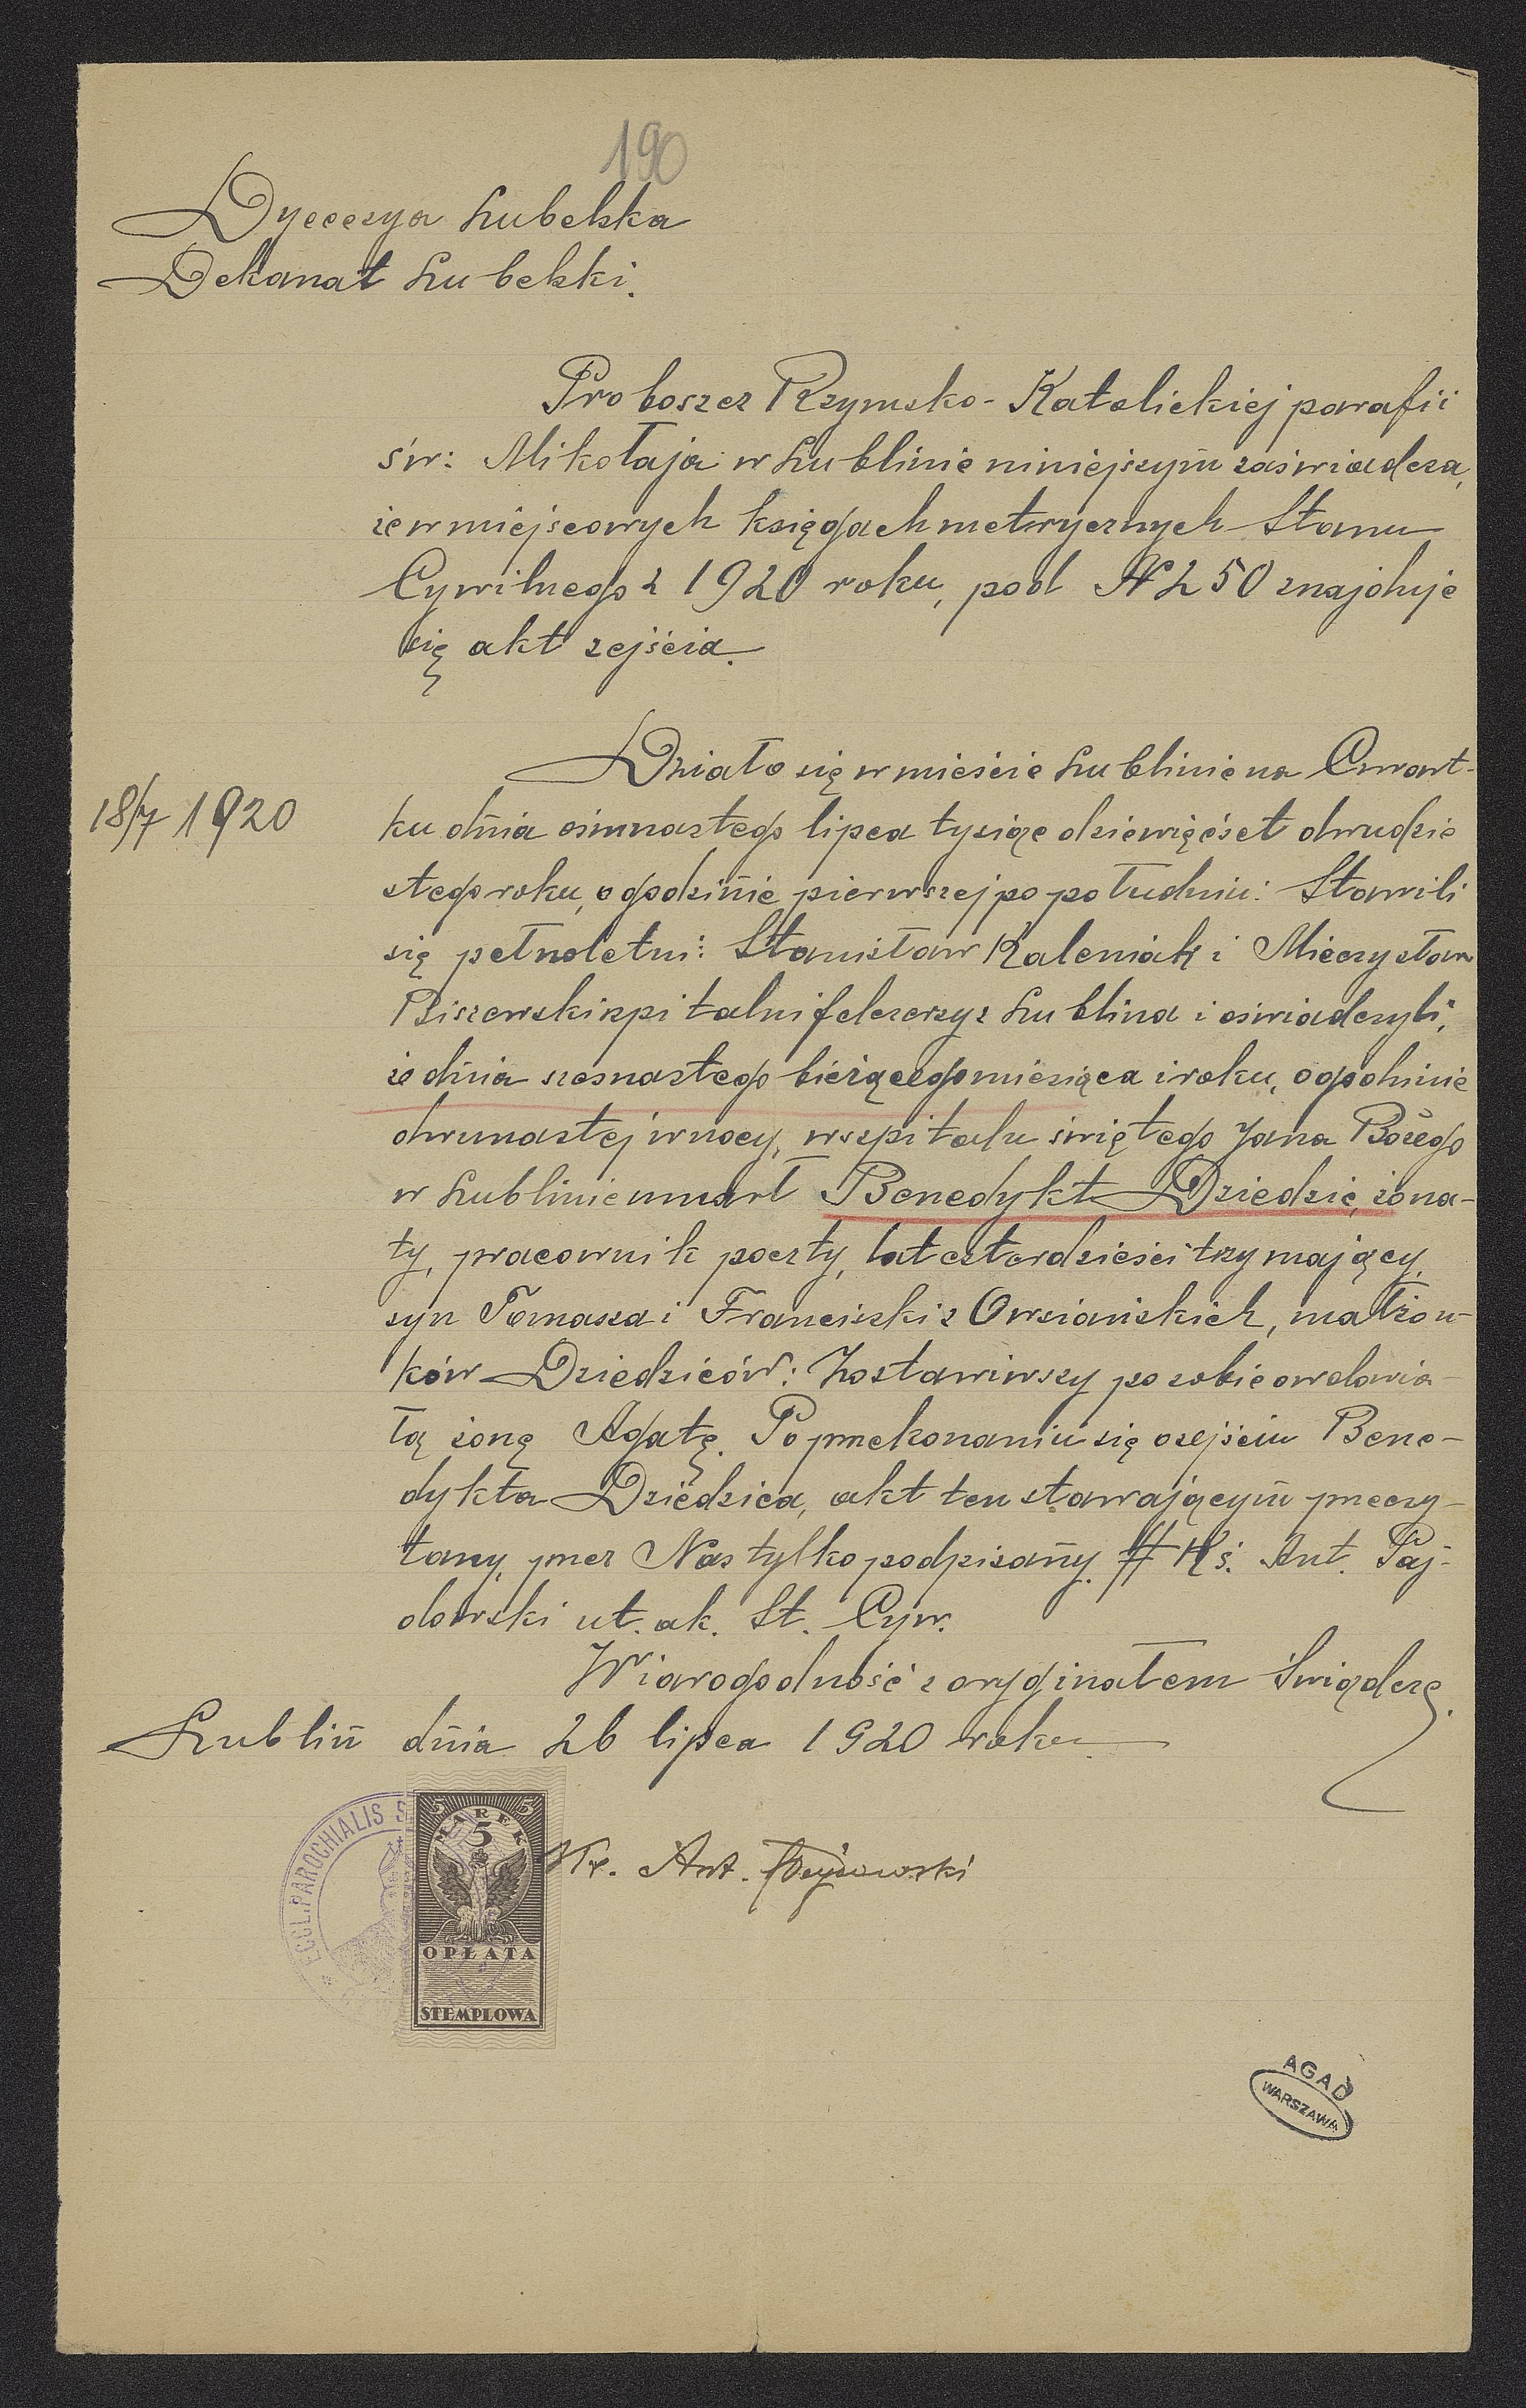 190
Dyecezya Lubelska
Dekanat Lubelski.
Proboszcz Rzymsko-Katolickiej parafii
św: Mikołaja w Lublinie niniejszym zaświadcza,
że w miejscowych księgach metrycznych Stanu
Cywilnego z 1920 roku, pod № 250 znajduje
się akt zejścia.
Działo się w mieście Lublinie na Czwart-
18/7 1920
ku dnia osimnastego lipca tysiąc dziewięćset dwudzie
stego roku, o godzinie pierwszej po południu: Stawili
się pełnoletni: Stanisław Kaleniak i Mieczysław
Biszewski szpitalni felczerzy z Lublina i oświadczyli,
że dnia szesnastego bieżącego miesiąca i roku, o godzinie
dwunastej w nocy, w szpitalu świętego Jana Bożego
w Lublinie umarł Benedykt Dziedzic, żona-
ty, pracownik poczty, lat czterdzieści trzy mający,
syn Tomasza i Franciszki z Owsiańskich, małżon-
ków Dziedziców: Zostawiwszy po sobie owdowia-
łą żonę Agatę. Po przekonaniu się o zejściu Bene-
dykta Dziedzica, akt ten stawającym przeczy-
tany, przez Nas tylko podpisany. # Ks. Ant. Paj-
dowski ut. ak. St. Cyw.
Wiarogodność z oryginałem świadczę.
Lublin dnia 26 lipca 1920 roku
ECCL. PAROCHIALIS S
5 5
MAREK
5
OPŁATA
STEMPLOWA
Ks. Ant.
AGAD
WARSZAWA